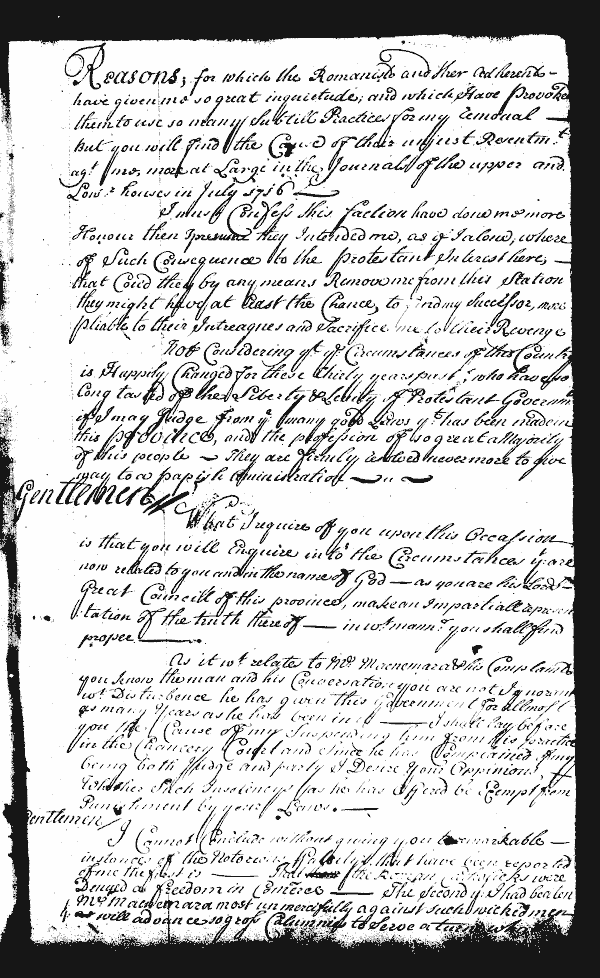 Reasons, for which the Romanists and their adherents
have given me so great inquietude, and which Have Provoked
them to use so many Subtill Practices for my removal
But you will find the Cause of their unjust Resentmt.
agt. me, more at Large in the Journals of the upper and
Lowr. houses in July 1716
I must Confess this faction have done me more
Honour then they Intended me, as if I alone, where
of Such Consequence to the protestant Interest here,
that Coud they by any means Remove me from this Station
they might have at Least the Chance, to find my Successor, more
Pliable to their Intreagues and Sacrifice me to their Revenge
Not Considering yt. ye Circumstances of this Country
is Happily Changed for these thirty years past, who have so
Long tasted of the Liberty & Lenity of Protestant Governmt
if I may Judge from ye many good Laws yt has been made in
this province, and the profession of so great a Majority
of this people They are firmly never more to give
way to a papish administration
Gentlemen
What I require of you upon this Occasion
is that you will Enquire into the Circumstances yt are
now related to you and in the name of God as you are his Lordps
Great Councill of this province, make an Impartiall represen
tation of the truth thereof in wt mannr. you shall find
proper
As it wt relates to Mr. Macnemara & his Complaints
you know the man and his Conversation you are not Ignorant
wt Disturbence he has given this Government for allmost
as many years as he has been in it I shall lay before
you the Cause of my Suspending him from his practice
in the Chancery Court and Since he has Complained of my
being both Judge and party I Desire Your Oppinions,
Whether Such Insolencys (as he has offered be Exempt from
Punishment by your Laws.
Gentlemen
I Cannot Conclude without giving you remarkable
instances of the Notorious that have been reported
of me the first is That the Roman Catholicks were
Denyed a freedom in The Second yt I had beaten
Mr. Macnemara most unmercifully against such wicked men
as will advance so gross Calumnies to Serve a turn